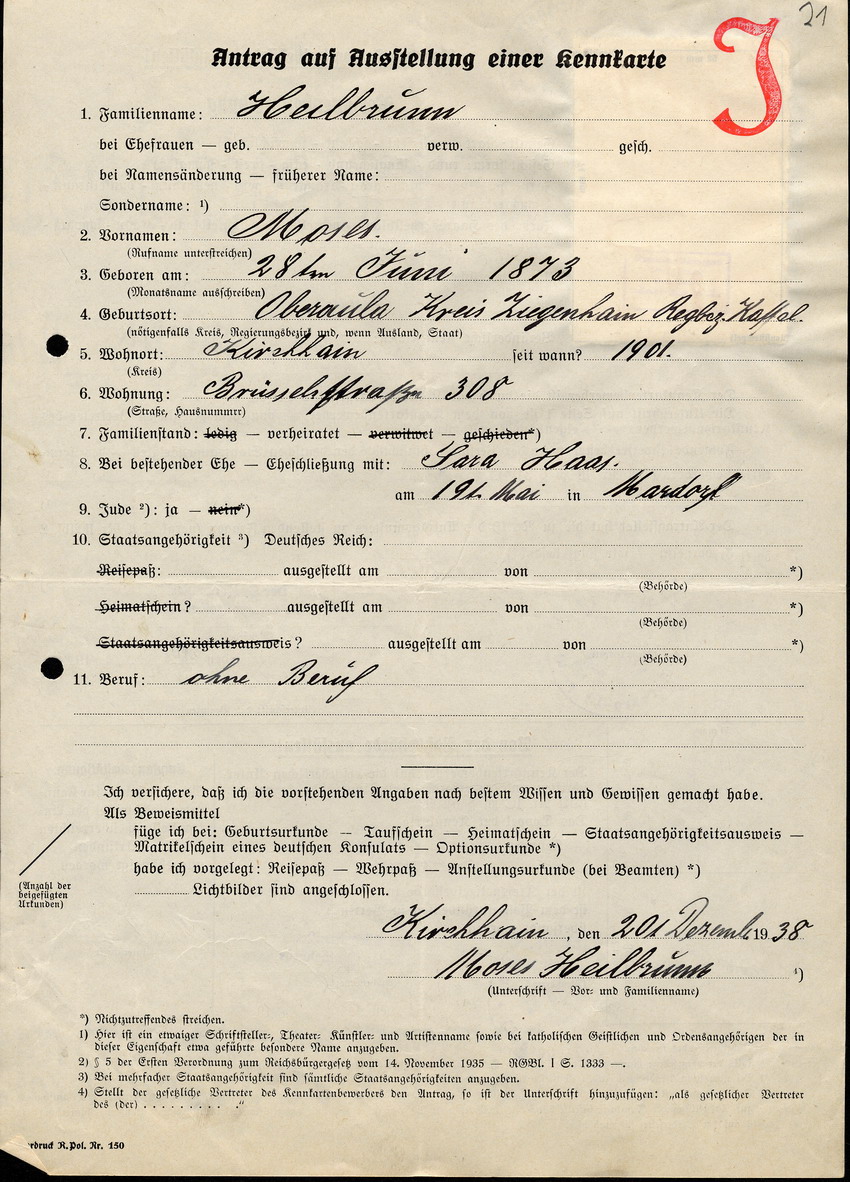 21
J
Antrag auf Ausstellung einer Kennkarte
1. Familienname: Heilbrunn
bei Ehefrauen — geb. verw. gesch.
bei Namensänderung — früherer Name:
Sondername: ¹)
2. Vornamen: Moses.
(Rufname unterstreichen)
3. Geboren am: 28ten Juni 1873
(Monatsname ausschreiben)
4. Geburtsort: Oberaula Kreis Ziegenhain Regbez. Kassel.
(nötigenfalls Kreis, Regierungsbezirk und, wenn Ausland, Staat)
5. Wohnort: Kirchhain seit wann? 1901.
(Kreis)
6. Wohnung: 308
(Straße, Hausnummer)
7. Familienstand: ledig — verheiratet — verwitwet — geschieden*)
8. Bei bestehender Ehe — Eheschließung mit: Sara Haas.
am 19t. Mai in Mardorf
9. Jude ²): ja — nein*)
10. Staatsangehörigkeit ³) Deutsches Reich:
Reisepaß: ausgestellt am von *)
(Behörde)
Heimatschein? ausgestellt am von *)
(Behörde)
Staatsangehörigkeitsausweis? ausgestellt am von *)
(Behörde)
11. Beruf: ohne Beruf
Ich versichere, daß ich die vorstehenden Angaben nach bestem Wissen und Gewissen gemacht habe.
Als Beweismittel
füge ich bei: Geburtsurkunde — Taufschein — Heimatschein — Staatsangehörigkeitsausweis —
Matrikelschein eines deutschen Konsulats — Optionsurkunde *)
habe ich vorgelegt: Reisepaß — Wehrpaß — Anstellungsurkunde (bei Beamten) *)
Lichtbilder sind angeschlossen.
(Anzahl der
beigefügten
Urkunden)
Kirchhain, den 20t Dezemb 1938
Moses Heilbrunn ⁴)
(Unterschrift — Vor- und Familienname)
*) Nichtzutreffendes streichen.
1) Hier ist ein etwaiger Schriftsteller-, Theater- Künstler- und Artistenname sowie bei katholischen Geistlichen und Ordensangehörigen der in
dieser Eigenschaft etwa geführte besondere Name anzugeben.
2) § 5 der Ersten Verordnung zum Reichsbürgergesetz vom 14. November 1935 — RGBl. I S. 1333 —.
3) Bei mehrfacher Staatsangehörigkeit sind sämtliche Staatsangehörigkeiten anzugeben.
4) Stellt der gesetzliche Vertreter des Kennkartenbewerbers den Antrag, so ist der Unterschrift hinzuzufügen: „als gesetzlicher Vertreter
des (der) . . . . . . . . . .“
R.Pol. Nr. 150